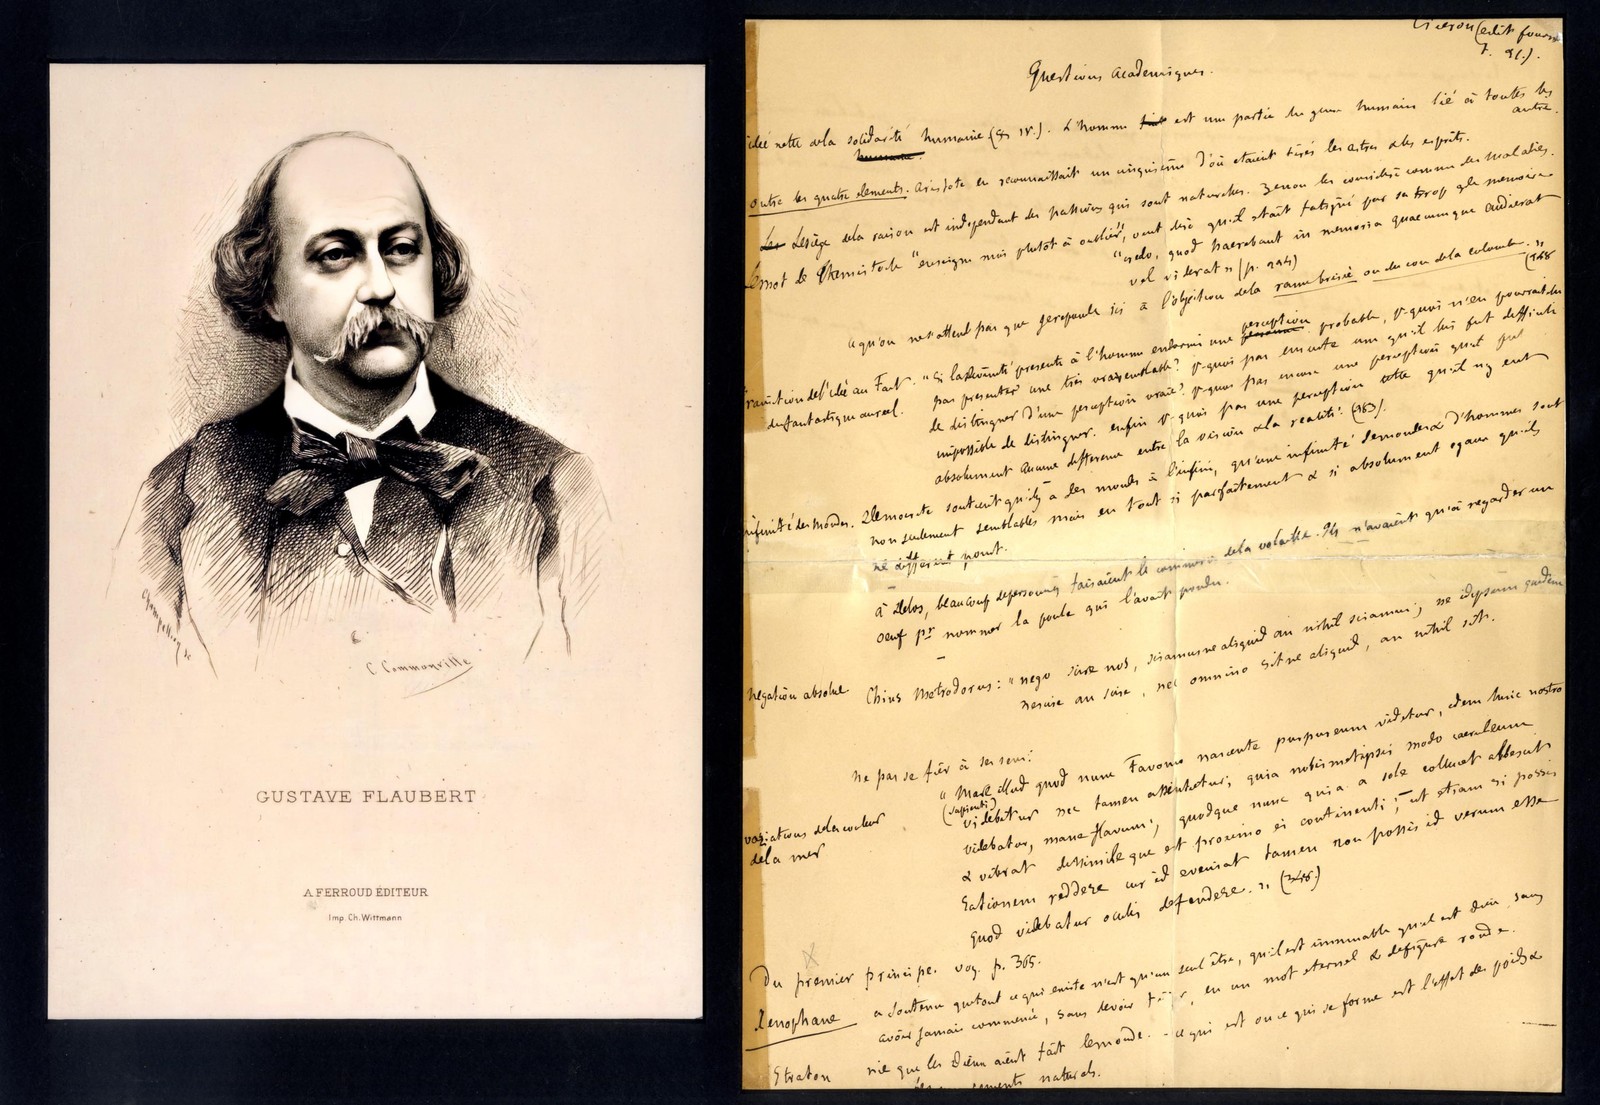 Champollion sc
C Commanville
GUSTAVE FLAUBERT
A FERROUD ÉDITEUR
Imp. Ch. Wittmann
Ciceron (edit fourn
t. 26.).
Questions academiques.
idée nette de la solidarité humaine (§ IV.). L'homme est une partie du genre humain lié à toutes les
humaine
autre.
outre les quatre elements. Aristote en reconnaissait un cinquième d'où etaient tirés les astres & les esprits.
Le siège de la raison est independant des passions qui sont naturelles. Zenon les considère comme des maladies.
le mot de Themistocle "enseigne moi plutôt à oublier", veut dire qu'il était fatigué par sa trop gde memoire
"credo, quod haerebant in memoria quaecumque audierat
vel viderat" (p. 294)
ce qu'on ne s'attend pas que je reponde ici à l'objection de la rame brisée ou du cou de la colombe."
(248
transition de l'idée au Fait.
du fantastique au reel.
"Si la divinité presente à l'homme endormi une perception probable, pquoi n'en pourrait elle
pas presenter une très vraisemblable? pquoi pas ensuite une qu'il lui fut difficile
de distinguer d'une perception vraie? pquoi pas encore une perception qu'il fut
impossible de distinguer. enfin pquoi pas une perception telle qu'il n'y eut
absolument aucune difference entre la vision & la realité. (263).
infinité des mondes. Democrite soutient qu'il y a des mondes à l'infini, qu'une infinité de mondes & d'hommes sont
non seulement semblables mais en tout si parfaitement & si absolument egaux qu'ils
ne different point.
à Delos, beaucoup de personnes faisaient le commerce de la volaille. Ils n'avaient qu'à regarder un
oeuf pr nommer la poule qui l'avait pondu.
negation absolue Chius Metrodorus: "nego scire nos, sciamusne aliquid an nihil sciamus; ne id ipsum quidem
nescire an scire, nec omnino sitne aliquid, an nihil sit.
ne pas se fier à ses sens:
"Mare illud quod nunc Favonio nascente purpureum videtur, idem huic nostro
(sapienti)
videbitur nec tamen assentietur; quia nobismetipsis modo caeruleum
variations de la couleur
de la mer
videbatur, mane flavum; quodque nunc quia a sole collucet albescit
& vibrat dissimileque est proximo ei continenti; ut etiam si possis
rationem reddere cur id eveniat tamen non possis id verum esse
quod videbatur oculis defendere." (348.)
Du premier principe. voy. p. 365.
Xenophane a soutenu que tout ce qui existe n'est qu'un seul être, qu'il est immuable qu'il est dieu, sans
avoir jamais commencé, sans devoir finir, en un mot eternel & de figure ronde.
Straton nie que les Dieux aient fait le monde. - ce qui est ou ce qui se forme est l'effet des poids &
des mouvements naturels.